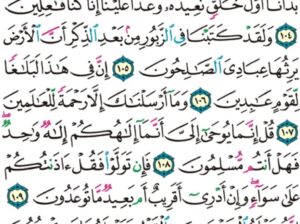 بَدَأْنَآ أَوَّلَ خَلْقٍ نُّعِيدُهُۥ وَعْدًا عَلَيْنَآ إِنَّا كُنَّا فَٰعِلِينَ
١٠٤ وَلَقَدْ كَتَبْنَا فِى ٱلزَّبُورِ مِنۢ بَعْدِ ٱلذِّكْرِ أَنَّ ٱلْأَرْضَ
يَرِثُهَا عِبَادِىَ ٱلصَّٰلِحُونَ ١٠٥ إِنَّ فِى هَٰذَا لَبَلَٰغًا
لِّقَوْمٍ عَٰبِدِينَ ١٠٦ وَمَآ أَرْسَلْنَٰكَ إِلَّا رَحْمَةً لِّلْعَٰلَمِينَ
١٠٧ قُلْ إِنَّمَا يُوحَىٰٓ إِلَىَّ أَنَّمَآ إِلَٰهُكُمْ إِلَٰهٌ وَٰحِدٌ
فَهَلْ أَنتُم مُّسْلِمُونَ ١٠٨ فَإِن تَوَلَّوْا۟ فَقُلْ ءَاذَنتُكُمْ
عَلَىٰ سَوَآءٍ وَإِنْ أَدْرِىٓ أَقَرِيبٌ أَم بَعِيدٌ مَّا تُوعَدُونَ ١٠٩